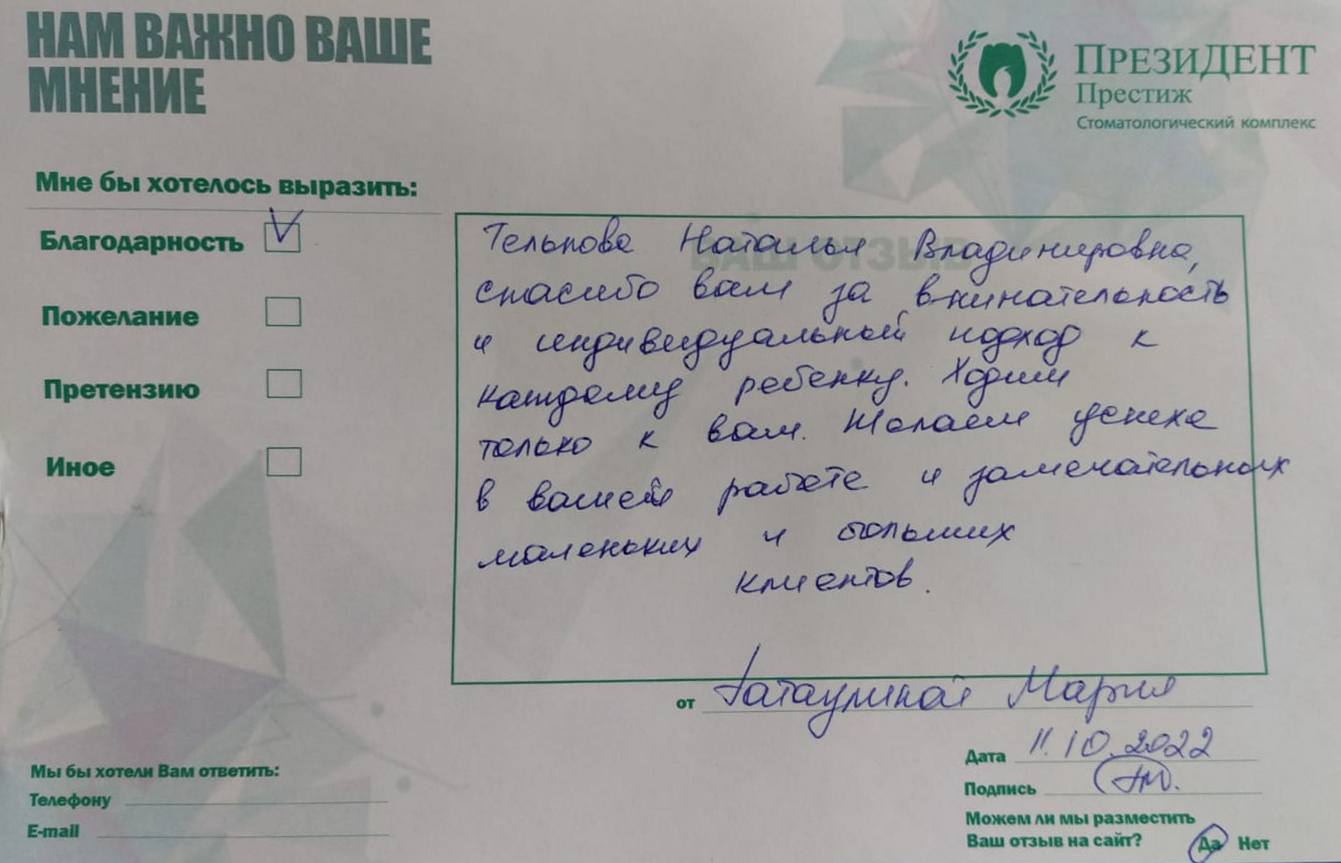 НАМ ВАЖНО ВАШЕ
МНЕНИЕ
ПРЕЗИДЕНТ
Престиж
Стоматологический комплекс
Мне бы хотелось выразить:
Благодарность V
Пожелание
Претензию
Иное
Наталья Владимировна,
спасибо вам за внимательность
и индивидуальный подход к
каждому ребенку. Ходим
только к вам. Желаем успеха
в вашей работе и замечательных
маленьких и больших
клиентов.
от Гатаулиной Мария
Дата 11.10.2022
Подпись
Мы бы хотели Вам ответить:
Телефону
E-mail
Можем ли мы разместить
Ваш отзыв на сайт? Да Нет